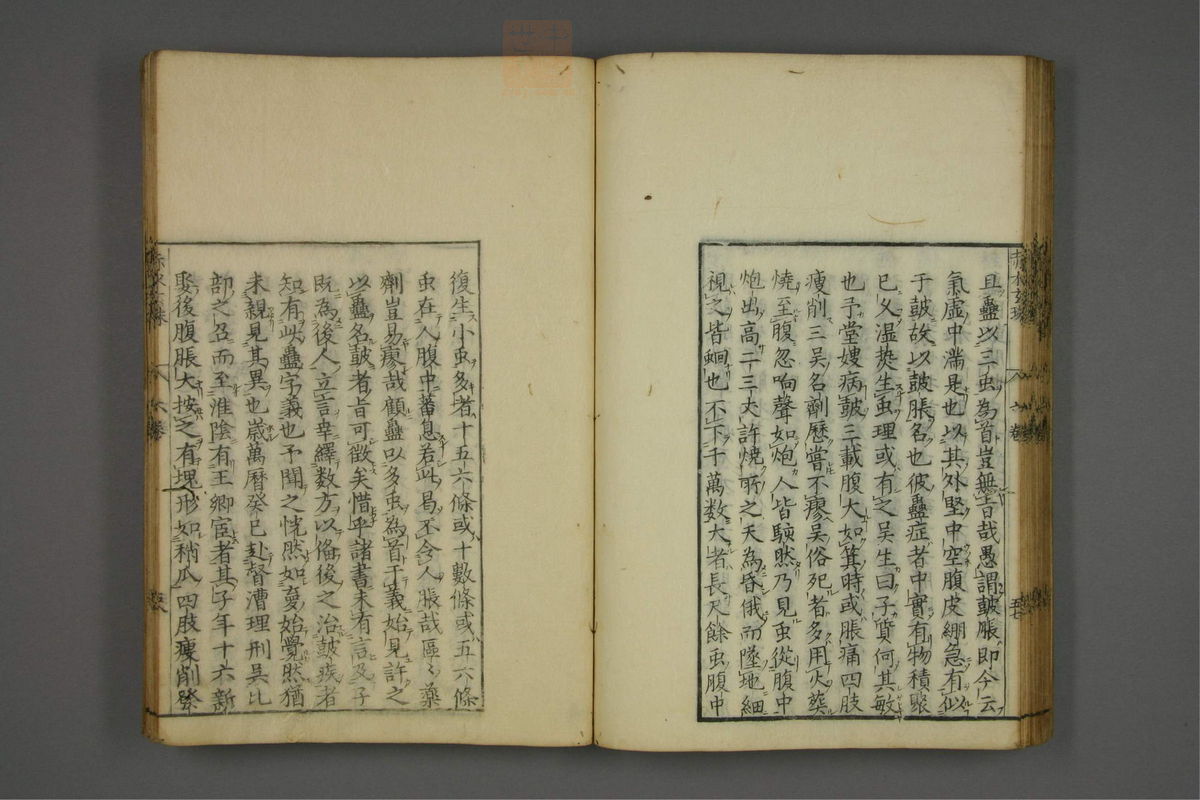 且蠱以三虫為首豈無旨哉愚謂鼓脹即今云
氣虛中滿是也以其外堅中空腹皮綳急有似
于鼓故以鼓脹名也彼蠱症者中實有物積聚
已久湿熱生虫理或有之吳生曰子質何其敏
也予堂嫂病鼓三載腹大如箕時或脹痛四肢
瘦削三吳名劑歷嘗不瘳吳俗死者多用火葬
燒至腹忽响聲如炮人皆駭然乃見虫從腹中
炮出高二三丈許燒所之天為昏俄而墜地細
視之皆蛔也不下千萬数大者長尺餘虫腹中
復生小虫多者十五六條或十數條或五六條
虫在人腹中蕃息若此曷不令人脹哉區々藥
劑豈易瘳哉顧蠱以多虫為首于義始見許之
以蠱名鼓者旨可徵矣惜乎諸書未有言及子
既為後人立言幸繹数方以俻後之治鼓疾者
知有此蠱字義也予聞之恍然如夢始覺然猶
未親見其異也歲萬曆癸巳赴督漕理刑吳比
部之召而至淮陰有王鄉宦者其子年十六新
娶後腹脹大按之有塊形如稍瓜四肢痩削發
赤水玄珠
八 六卷